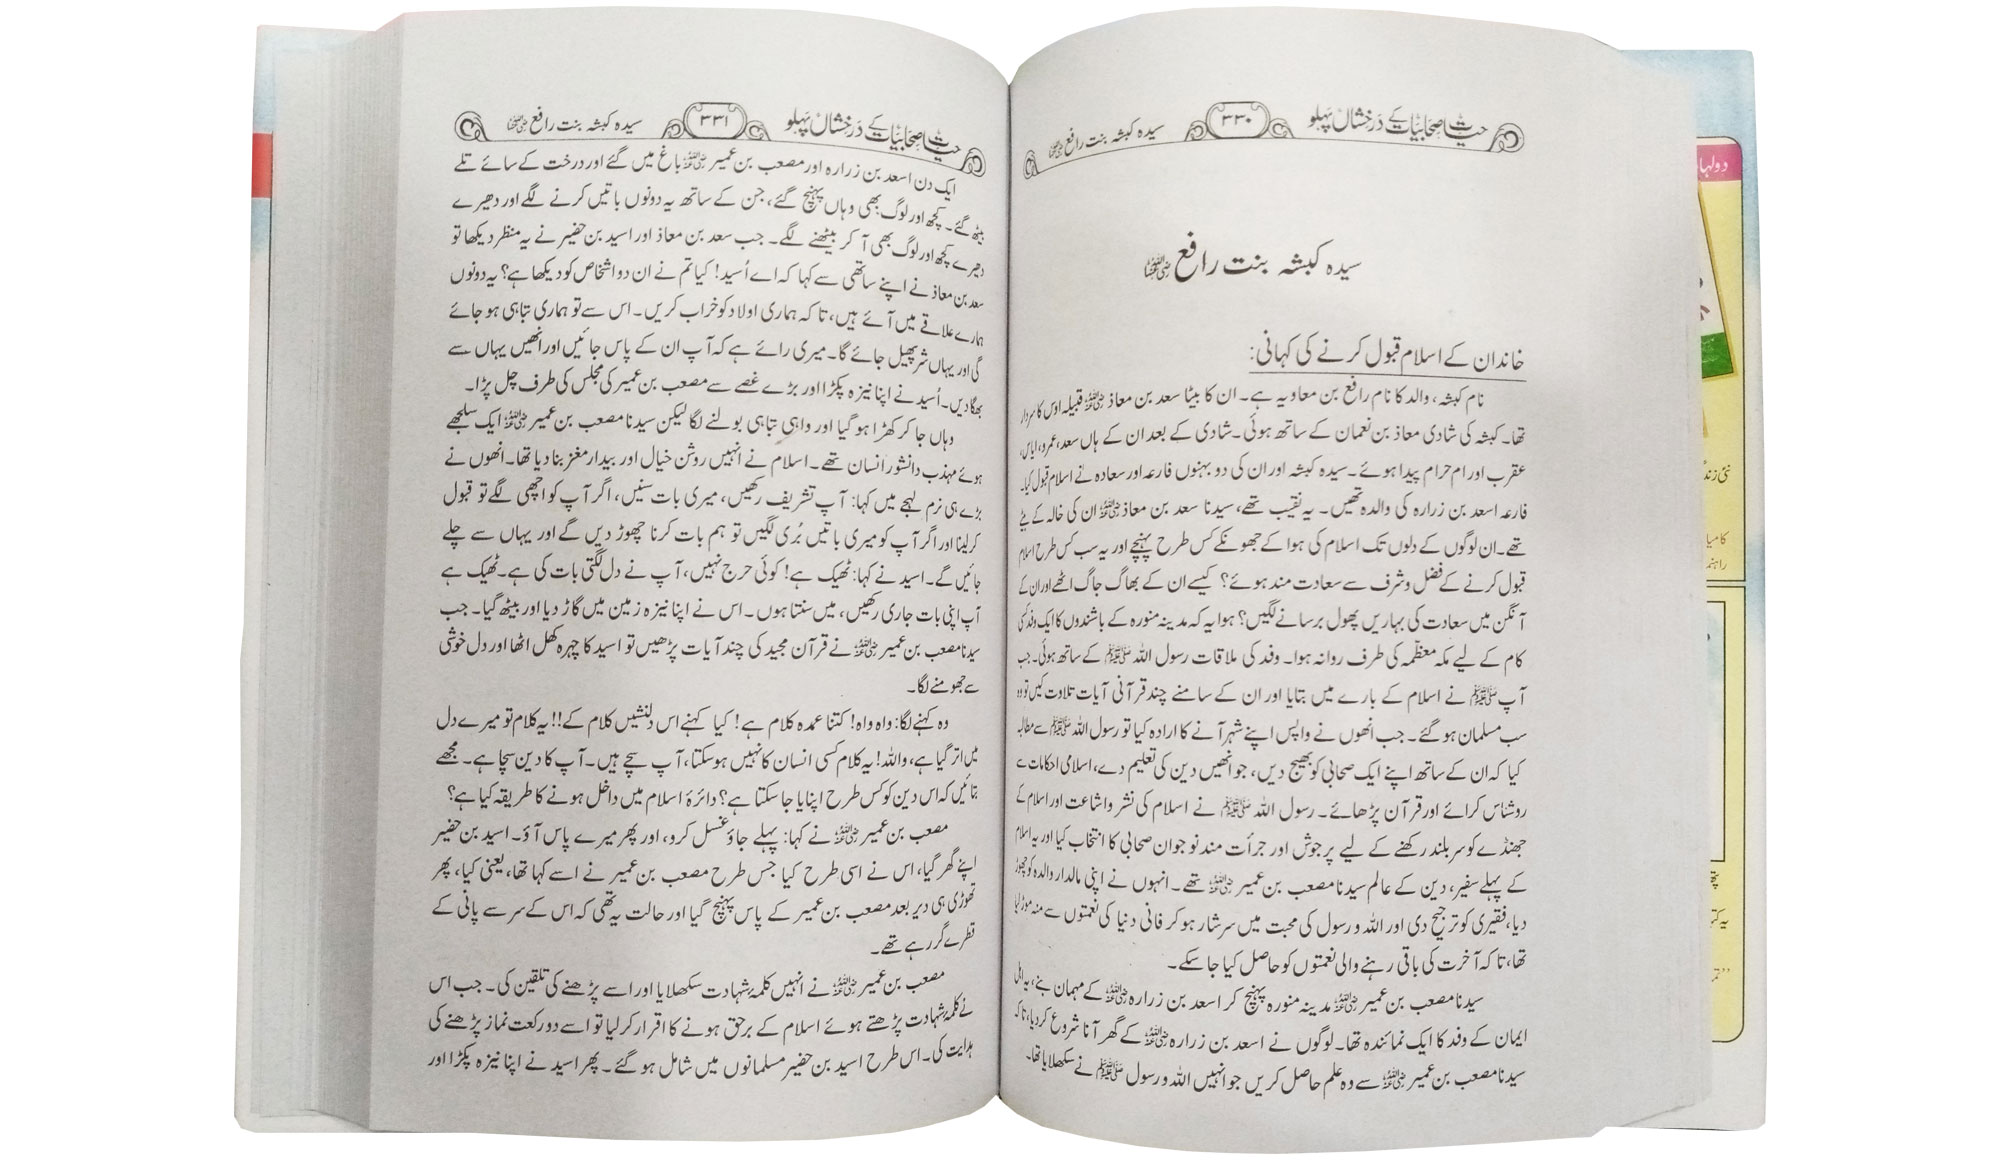 حیات صحابیات کے درخشاں پہلو
۳۳۰
سیدہ کبشہ بنت رافع رضی اللہ عنہا
سیدہ کبشہ بنت رافع رضی اللہ عنہا
خاندان کے اسلام قبول کرنے کی کہانی:
نام کبشہ، والد کا نام رافع بن معاویہ ہے۔ ان کا بیٹا سعد بن معاذ رضی اللہ عنہ قبیلہ اوس کا سردار
تھا۔ کبشہ کی شادی معاذ بن نعمان کے ساتھ ہوئی۔ شادی کے بعد ان کے ہاں سعد، عمرو، ایاس،
عقرب اور ام حرام پیدا ہوئے۔ سیدہ کبشہ اور ان کی دو بہنوں فارعہ اور سعادہ نے اسلام قبول کیا۔
فارعہ اسعد بن زرارہ کی والدہ تھیں۔ یہ نقیب تھے، سیدنا سعد بن معاذ رضی اللہ عنہ ان کی خالہ کے بیٹے
تھے۔ ان لوگوں کے دلوں تک اسلام کی ہوا کے جھونکے کس طرح پہنچے اور یہ سب کس طرح اسلام
قبول کرنے کے فضل و شرف سے سعادت مند ہوئے؟ کیسے ان کے بھاگ جاگ اٹھے اور ان کے
آنگن میں سعادت کی بہاریں پھول برسانے لگیں؟ ہوا یہ کہ مدینہ منورہ کے باشندوں کا ایک وفد کسی
کام کے لیے مکہ معظمہ کی طرف روانہ ہوا۔ وفد کی ملاقات رسول اللہ ﷺ کے ساتھ ہوئی۔ جب
آپ ﷺ نے اسلام کے بارے میں بتایا اور ان کے سامنے چند قرآنی آیات تلاوت کیں تو وہ
سب مسلمان ہو گئے۔ جب انھوں نے واپس اپنے شہر آنے کا ارادہ کیا تو رسول اللہ ﷺ سے مطالبہ
کیا کہ ان کے ساتھ اپنے ایک صحابی کو بھیج دیں، جو انھیں دین کی تعلیم دے، اسلامی احکامات سے
روشناس کرائے اور قرآن پڑھائے۔ رسول اللہ ﷺ نے اسلام کی نشر و اشاعت اور اسلام کے
جھنڈے کو سربلند رکھنے کے لیے پرجوش اور جرأت مند نوجوان صحابی کا انتخاب کیا اور یہ اسلام
کے پہلے سفیر، دین کے عالم سیدنا مصعب بن عمیر رضی اللہ عنہ تھے۔ انہوں نے اپنی مالدار والدہ کو چھوڑ
دیا، فقیری کو ترجیح دی اور اللہ و رسول کی محبت میں سرشار ہو کر فانی دنیا کی نعمتوں سے منہ موڑ لیا
تھا، تاکہ آخرت کی باقی رہنے والی نعمتوں کو حاصل کیا جا سکے۔
سیدنا مصعب بن عمیر رضی اللہ عنہ مدینہ منورہ پہنچ کر اسعد بن زرارہ رضی اللہ عنہ کے مہمان بنے، یہ اہل
ایمان کے وفد کا ایک نمائندہ تھا۔ لوگوں نے اسعد بن زرارہ رضی اللہ عنہ کے گھر آنا شروع کر دیا، تاکہ
سیدنا مصعب بن عمیر رضی اللہ عنہ سے وہ علم حاصل کریں جو انہیں اللہ و رسول ﷺ نے سکھلایا تھا۔
حیات صحابیات کے درخشاں پہلو
۳۳۱
سیدہ کبشہ بنت رافع رضی اللہ عنہا
ایک دن اسعد بن زرارہ اور مصعب بن عمیر رضی اللہ عنہ باغ میں گئے اور درخت کے سائے تلے
بیٹھ گئے۔ کچھ اور لوگ بھی وہاں پہنچ گئے، جن کے ساتھ یہ دونوں باتیں کرنے لگے اور دھیرے
دھیرے کچھ اور لوگ بھی آ کر بیٹھنے لگے۔ جب سعد بن معاذ اور اسید بن حضیر نے یہ منظر دیکھا تو
سعد بن معاذ نے اپنے ساتھی سے کہا کہ اے اُسید! کیا تم نے ان دو اشخاص کو دیکھا ہے؟ یہ دونوں
ہمارے علاقے میں آئے ہیں، تاکہ ہماری اولاد کو خراب کریں۔ اس سے تو ہماری تباہی ہو جائے
گی اور یہاں شر پھیل جائے گا۔ میری رائے ہے کہ آپ ان کے پاس جائیں اور انھیں یہاں سے
بھگا دیں۔ اُسید نے اپنا نیزہ پکڑا اور بڑے غصے سے مصعب بن عمیر کی مجلس کی طرف چل پڑا۔
وہاں جا کر کھڑا ہو گیا اور واہی تباہی بولنے لگا لیکن سیدنا مصعب بن عمیر رضی اللہ عنہ ایک سلجھے
ہوئے مہذب دانشور انسان تھے۔ اسلام نے انہیں روشن خیال اور بیدار مغز بنا دیا تھا۔ انھوں نے
بڑے ہی نرم لہجے میں کہا: آپ تشریف رکھیں، میری بات سنیں، اگر آپ کو اچھی لگے تو قبول
کر لینا اور اگر آپ کو میری باتیں بُری لگیں تو ہم بات کرنا چھوڑ دیں گے اور یہاں سے چلے
جائیں گے۔ اسید نے کہا: ٹھیک ہے! کوئی حرج نہیں، آپ نے دل لگتی بات کی ہے۔ ٹھیک ہے
آپ اپنی بات جاری رکھیں، میں سنتا ہوں۔ اس نے اپنا نیزہ زمین میں گاڑ دیا اور بیٹھ گیا۔ جب
سیدنا مصعب بن عمیر رضی اللہ عنہ نے قرآن مجید کی چند آیات پڑھیں تو اسید کا چہرہ کھل اٹھا اور دل خوشی
سے جھومنے لگا۔
وہ کہنے لگا: واہ واہ! کتنا عمدہ کلام ہے! کیا کہنے اس دلنشیں کلام کے!! یہ کلام تو میرے دل
میں اتر گیا ہے، واللہ! یہ کلام کسی انسان کا نہیں ہو سکتا، آپ سچے ہیں۔ آپ کا دین سچا ہے۔ مجھے
بتائیں کہ اس دین کو کس طرح اپنایا جا سکتا ہے؟ دائرۂ اسلام میں داخل ہونے کا طریقہ کیا ہے؟
مصعب بن عمیر رضی اللہ عنہ نے کہا: پہلے جاؤ غسل کرو، اور پھر میرے پاس آؤ۔ اسید بن حضیر
اپنے گھر گیا، اس نے اسی طرح کیا جس طرح مصعب بن عمیر نے اسے کہا تھا، یعنی کیا، پھر
تھوڑی ہی دیر بعد مصعب بن عمیر کے پاس پہنچ گیا اور حالت یہ تھی کہ اس کے سر سے پانی کے
قطرے گر رہے تھے۔
مصعب بن عمیر رضی اللہ عنہ نے انہیں کلمۂ شہادت سکھلایا اور اسے پڑھنے کی تلقین کی۔ جب اس
نے کلمۂ شہادت پڑھتے ہوئے اسلام کے برحق ہونے کا اقرار کر لیا تو اسے دو رکعت نماز پڑھنے کی
ہدایت کی۔ اس طرح اسید بن حضیر مسلمانوں میں شامل ہو گئے۔ پھر اسید نے اپنا نیزہ پکڑا اور
دولہا
نئی زندگی